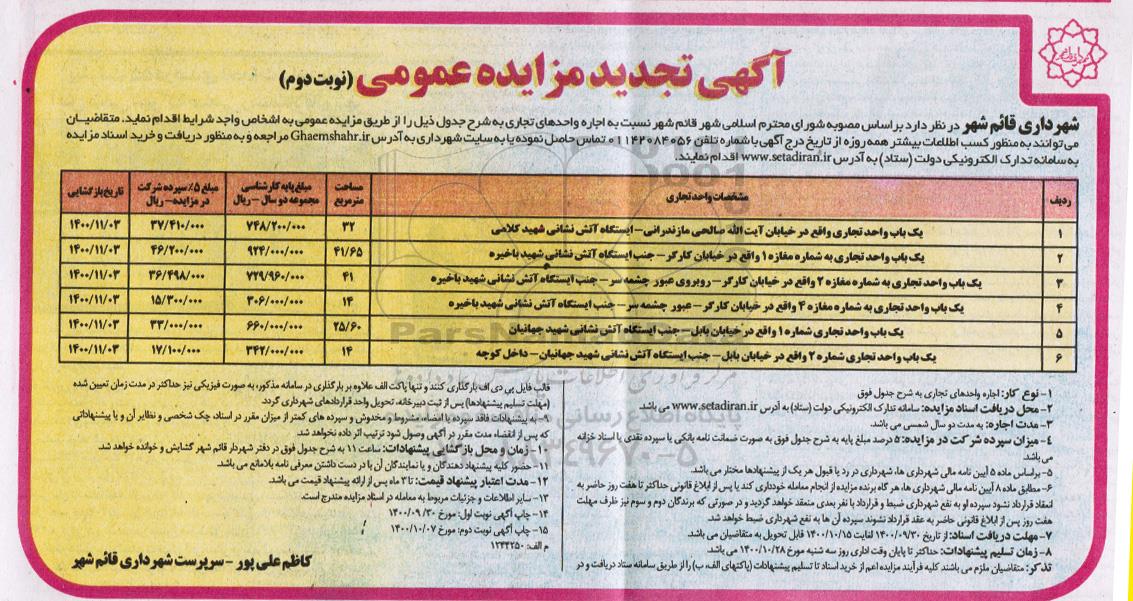 آگهی تجدید مزایده عمومی (نوبت دوم)
شهرداری قائم شهر در نظر دارد براساس مصوبه شورای محترم اسلامی شهر قائم شهر نسبت به اجاره واحدهای تجاری به شرح جدول ذیل را از طریق مزایده عمومی به اشخاص واجد شرایط اقدام نماید. متقاضیان
می توانند به منظور کسب اطلاعات بیشتر همه روزه از تاریخ درج آگهی با شماره تلفن ۰۱۱۴۲۰۸۴۰۵۶ تماس حاصل نموده یا به سایت شهرداری به آدرس Ghaemshahr.ir مراجعه و به منظور دریافت و خرید اسناد مزایده
به سامانه تدارک الکترونیکی دولت (ستاد) به آدرس www.setadiran.ir اقدام نمایند.
ردیف مشخصات واحد تجاری مساحت مترمربع مبلغ پایه کارشناسی مجموعه دو سال – ریال مبلغ ۵٪ سپرده شرکت در مزایده – ریال تاریخ بازگشایی
۱ یک باب واحد تجاری واقع در خیابان آیت الله صالحی مازندرانی – ایستگاه آتش نشانی شهید کلامی ۳۲ ۷۴۸/۲۰۰/۰۰۰ ۳۷/۴۱۰/۰۰۰ ۱۴۰۰/۱۱/۰۳
۲ یک باب واحد تجاری به شماره مغازه ۱ واقع در خیابان کارگر – جنب ایستگاه آتش نشانی شهید باخیره ۴۱/۶۵ ۹۲۴/۰۰۰/۰۰۰ ۴۶/۲۰۰/۰۰۰ ۱۴۰۰/۱۱/۰۳
۳ یک باب واحد تجاری به شماره مغازه ۲ واقع در خیابان کارگر – روبروی عبور چشمه سر – جنب ایستگاه آتش نشانی شهید باخیره ۴۱ ۷۲۹/۹۶۰/۰۰۰ ۳۶/۴۹۸/۰۰۰ ۱۴۰۰/۱۱/۰۳
۴ یک باب واحد تجاری به شماره مغازه ۴ واقع در خیابان کارگر – عبور چشمه سر – جنب ایستگاه آتش نشانی شهید باخیره ۱۴ ۳۰۶/۰۰۰/۰۰۰ ۱۵/۳۰۰/۰۰۰ ۱۴۰۰/۱۱/۰۳
۵ یک باب واحد تجاری شماره ۱ واقع در خیابان بابل – جنب ایستگاه آتش نشانی شهید جهانیان ۲۵/۶۰ ۶۶۰/۰۰۰/۰۰۰ ۳۳/۰۰۰/۰۰۰ ۱۴۰۰/۱۱/۰۳
۶ یک باب واحد تجاری شماره ۲ واقع در خیابان بابل – جنب ایستگاه آتش نشانی شهید جهانیان – داخل کوچه ۱۴ ۳۴۲/۰۰۰/۰۰۰ ۱۷/۱۰۰/۰۰۰ ۱۴۰۰/۱۱/۰۳
۱- نوع کار: اجاره واحدهای تجاری به شرح جدول فوق
۲- محل دریافت اسناد مزایده: سامانه تدارک الکترونیکی دولت (ستاد) به آدرس www.setadiran.ir می باشد.
۳- مدت اجاره: به مدت دو سال شمسی می باشد.
۴- میزان سپرده شرکت در مزایده: ۵ درصد مبلغ پایه به شرح جدول فوق به صورت ضمانت نامه بانکی یا سپرده نقدی یا اسناد خزانه
می باشد.
۵- براساس ماده ۵ آیین نامه مالی شهرداری ها، شهرداری در رد یا قبول هر یک از پیشنهادها مختار می باشد.
۶- مطابق ماده ۸ آیین نامه مالی شهرداری ها، هر گاه برنده مزایده از انجام معامله خودداری کند یا پس از ابلاغ قانونی حداکثر تا هفت روز حاضر به
انعقاد قرارداد نشود سپرده او به نفع شهرداری ضبط و قرارداد با نفر بعدی منعقد خواهد گردید و در صورتی که برندگان دوم و سوم نیز ظرف مهلت
هفت روز پس از ابلاغ قانونی حاضر به عقد قرارداد نشوند سپرده آن ها به نفع شهرداری ضبط خواهد شد.
۷- مهلت دریافت اسناد: از تاریخ ۱۴۰۰/۰۹/۳۰ لغایت ۱۴۰۰/۱۰/۱۵ قابل تحویل به متقاضیان می باشد.
۸- زمان تسلیم پیشنهادات: حداکثر تا پایان وقت اداری روز سه شنبه مورخ ۱۴۰۰/۱۰/۲۸ می باشد.
تذکر: متقاضیان ملزم می باشند کلیه فرآیند مزایده اعم از خرید اسناد تا تسلیم پیشنهادات (پاکتهای الف، ب) را از طریق سامانه ستاد دریافت و در
قالب فایل پی دی اف بارگذاری کنند و تنها پاکت الف علاوه بر بارگذاری در سامانه مذکور، به صورت فیزیکی نیز حداکثر در مدت زمان تعیین شده
(مهلت تسلیم پیشنهادها) پس از ثبت دبیرخانه، تحویل واحد قراردادهای شهرداری گردد.
۹- به پیشنهادات فاقد سپرده یا امضاء، مشروط و مخدوش و سپرده های کمتر از میزان مقرر در اسناد، چک شخصی و نظایر آن و یا پیشنهاداتی
که پس از انقضاء مدت مقرر در آگهی وصول شود ترتیب اثر داده نخواهد شد.
۱۰- زمان و محل بازگشایی پیشنهادات: ساعت ۱۱ به شرح جدول فوق در دفتر شهردار قائم شهر گشایش و خوانده خواهد شد.
۱۱- حضور کلیه پیشنهاد دهندگان و یا نمایندگان آن با در دست داشتن معرفی نامه بلامانع می باشد.
۱۲- مدت اعتبار پیشنهاد قیمت: تا ۳ ماه پس از ارائه پیشنهاد قیمت می باشد.
۱۳- سایر اطلاعات و جزئیات مربوط به معامله در اسناد مزایده مندرج است.
۱۴- چاپ آگهی نوبت اول: مورخ ۱۴۰۰/۰۹/۳۰
۱۵- چاپ آگهی نوبت دوم: مورخ ۱۴۰۰/۱۰/۰۷
م الف: ۱۲۴۴۲۵۰
کاظم علی پور – سرپرست شهرداری قائم شهر